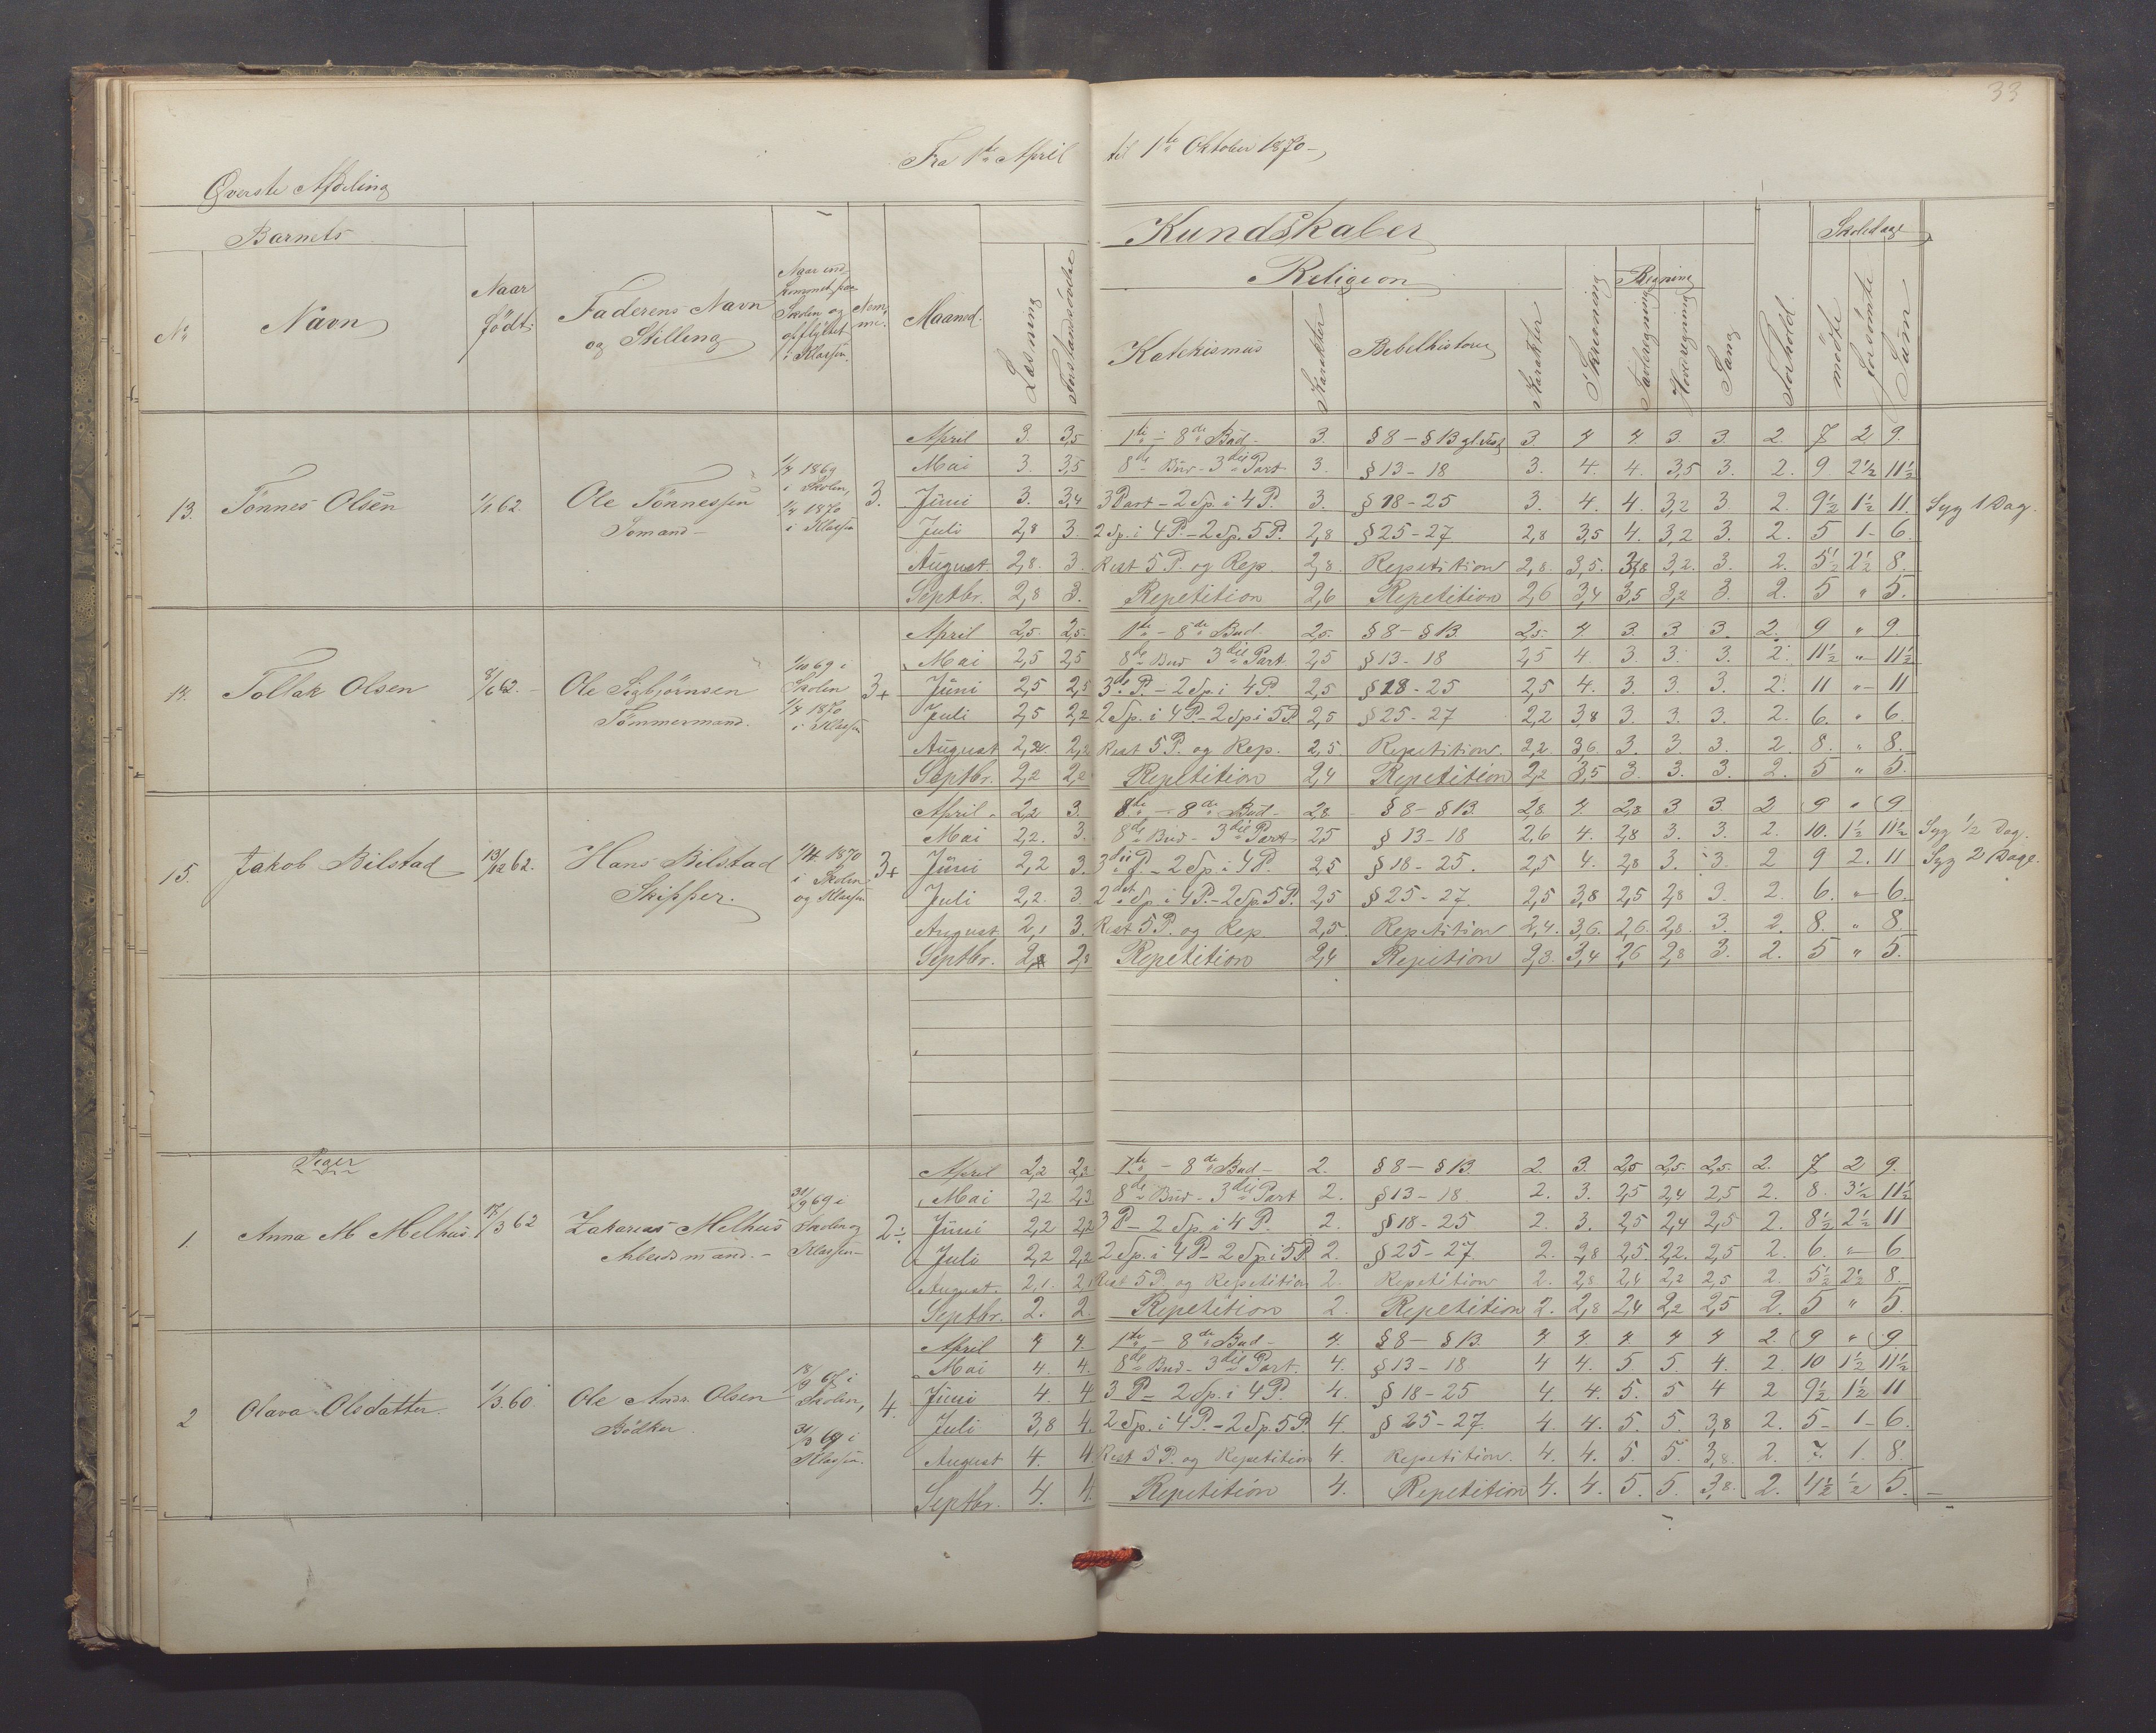 33
Fra 1ste April til 1ste Oktober 1870 –
Øverste Afdeling
Barnets
Kundskaber
Skoledage
Religion
Regning
No
Navn
Naar födt.
Faderens Navn og Stilling
Skolen og
i Klassen.
Nem-
me.
Maaned.
Læsning
Forstandsövelse
Katekismus
Karakter
Bibelhistorie
Karakter
Skrivning
Tavleregning
Hovedregning
Sang
Forhold.
mödte
forsömte
Sum
April 3. 3,5 1ste – 8de Bud – 3. § 8 – § 13 gl. Test. 3. 4 4 3. 3. 2. 7 2 9.
Mai 3. 3,5 8de Bud – 3die Part 3. § 13 – 18 3. 4. 4. 3,5 3. 2. 9 2½ 11½
13. Tönnes Olsen 1/1 62. Ole Tönnessen Sömand – 1/4 1869 i Skolen, 1/4 1870 i Klassen 3.
Juni 3. 3,4 3 Part – 2 Sp. i 4 P. 3. § 18 – 25 3. 4. 4. 3,2 3 2. 9½ 1½ 11. Syg 1 Dag.
Juli 2,8 3. 2 Sp. i 4 P. – 2 Sp. 5 P. 2,8 § 25 – 27 2,8 3,5 4. 3,2 3. 2. 5 1 – 6.
August. 2,8. 3. Rest 5 P. og Rep. 2,8. Repetition 2,8. 3,5. 3,8 3,2. 3. 2. 5½ 2½ 8.
Septbr. 2,8 3. Repetition 2,6 Repetition 2,6 3,4 3,5 3,2 3. 2. 5 " 5.
April 2,5. 2,5. 1ste – 8de Bud. 2,5. § 8 – § 13. 2,5. 4. 3. 3. 3. 2. 9 " 9.
Mai 2,5 2,5 8de Bud 3die Part. 2,5 § 13 – 18 2,5 4. 3. 3. 3. 2. 11½ " 11½
14. Tollak Olsen 8/6 62. – Ole Sigbjörnsen Tömmermand. 1/10 69 i Skolen 1/4 1870 i Klassen 3+
Juni 2,5 2,5 3die P. – 2 Sp. i 4 P. 2,5 § 18 – 25 2,5 4. 3. 3. 3. 2. 11 " 11
Juli 2,5 2,2 2 Sp. i 4 P – 2 Sp i 5 P. 2,5 § 25 – 27 2,2 3,8 3. 3. 3. 2. 6. " 6.
August 2,2. 2,2 Rest 5 P. og Rep. 2,5. Repetition. 2,2. 3,6. 3. 3. 3. 2. 8. " 8.
Septbr. 2,2 2,2 Repetition 2,4 Repetition 2,2 3,5 3. 3. 3. 2. 5 " 5.
April. 2,2 3. 1ste – 8de Bud – 2,8. § 8 – § 13. 2,8. 4 2,8 3 3. 2 9 " 9
Mai 2,2. 3. 8de Bud – 3die Part – 2,5 § 13 – 18 2,6 4. 2,8 3. 3. 2. 10. 1½ 11½ Syg ½ Dag.
15. Jakob Bilstad 13/12 62. Hans Bilstad Skipper. 1/4 1870 i Skolen og Klassen 3+
Juni 2,2 3. 3die P. – 2 Sp. i 4 P. 2,5 § 18 – 25. 2,5 4. 2,8 3. 3. 2 9 2. 11 Syg 2 Dage.
Juli 2,2. 3. 2det Sp. i 4 P. – 2 Sp. 5 P. 2,5 § 25 – 27. 2,5 3,8 2,5 2,8 3. 2. 6. " 6.
August. 2,1 3. Rest 5 P. og Rep. 2,5. Repetition 2,4. 3,6. 2,6. 2,8. 3. 2. 8. " 8.
Septbr. 2,8 Repetition 2,4 Repetition 2,3. 3,4 2,6 2,8 3. 2. 5 " 5.
Piger
April 2,2 2,3 1ste – 8de Bud – 2. § 8 – § 13. 2. 3. 2,5 2,5. 2,5. 2. 7 2 9.
Mai 2,2 2,3 8de Bud – 3die Part 2. § 13 – 18 2. 3. 2,5 2,4 2,5 2. 8. 3½ 11½
1. Anna M Melhus. 17/3 62 Zakarias Melhus Arbeidsmand. – 31/3 69 i Skolen og Klassen – 2÷
Juni 2,2 2,2 3 P – 2 Sp. i 4 P. 2. § 18 – 25 2. 3. 2,5 2,4 2,5 2. 8½ 2½ 11
Juli 2,2 2,2 2 Sp. i 4 P – 2 Sp i 5 P. 2. § 25 – 27 2. 2,8 2,5 2,2. 2,5 2. 6. " 6
August. 2,1. 2,1 Rest 5 P. og Repetition 2. Repetition 2. 2,8 2,4 2,2 2,5 2. 5½ 2½ 8.
Septbr. 2. 2. Repetition 2. Repetition 2. 2,8 2,4 2,2 2,5 2. 5 " 5.
April 4 4. 1ste – 8de Bud – 4. § 8 – § 13. 4 4 4 4 4 2. 9 " 9
Mai 4. 4. 8de Bud – 3die Part. 4. § 13 – 18 4 4. 5. 5. 4. 2. 10 1½ 11½
2 Olava Olsdatter 1/3 60. Ole Andr. Olsen Bödker. 18/9 67 i Skolen, 31/3 69 i Klassen. 4.
Juni 4. 4 3 P – 2 Sp. i 4 P. 4. § 18 – 25 4 4. 5. 5 4 2 9½ 1½ 11
Juli 3,8 4. 2 Sp. i 4 P. – 2 Sp. 5 P. 4. § 25 – 27. 4. 4. 5. 5. 3,8 2. 5 – 1 – 6.
August 4. 4. Rest 5 P. og Repetition 4. Repetition. 4. 4. 5. 5. 3,8. 2. 7. 1. 8.
Septbr. 4. 4. Repetition 4. Repetition 4. 4. 5. 5. 3,8. 2. 4½ ½ 5. –